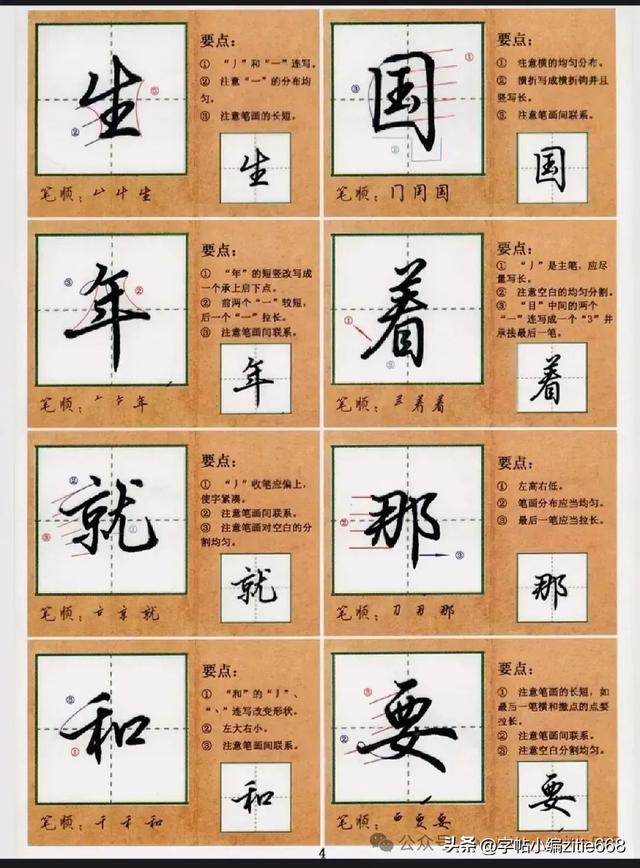 生
要点：
① “丿”和“一”连写。
② 注意“一”的分布均
匀。
③ 注意笔画的长短。
生
笔顺：𠂉 牛 生
国
要点：
① 注意横的均匀分布。
② 横折写成横折钩并且
竖写长。
③ 注意笔画间联系。
国
笔顺：冂 国
年
要点：
① “年”的短竖改写成
一个承上启下点。
② 前两个“一”较短，
后一个“一”拉长。
③ 注意笔画间联系。
年
笔顺：年
着
要点：
① “丿”是主笔，应尽
量写长。
② 注意空白的均匀分割。
③ “目”中间的两个
“一”连写成一个“3”并
承接最后一笔。
着
笔顺：着 着
就
要点：
① “丿”收笔应偏上，
使字紧凑。
② 注意笔画间联系。
③ 注意笔画对空白的分
割均匀。
就
笔顺：京 就
那
要点：
① 左高右低。
② 笔画分布应当均匀。
③ 最后一笔应当拉长。
那
笔顺：刀 那
和
要点：
① “和”的“丿”、
“丶”连写改变形状。
② 左大右小。
③ 注意笔画间联系。
和
笔顺：千 禾 和
要
要点：
① 注意笔画的长短，如
最后一笔横和撇点的点要
拉长。
② 注意笔画间联系。
③ 注意空白分割均匀。
要
笔顺：覀 要
4
公众号
头条 @字帖小编zitie668